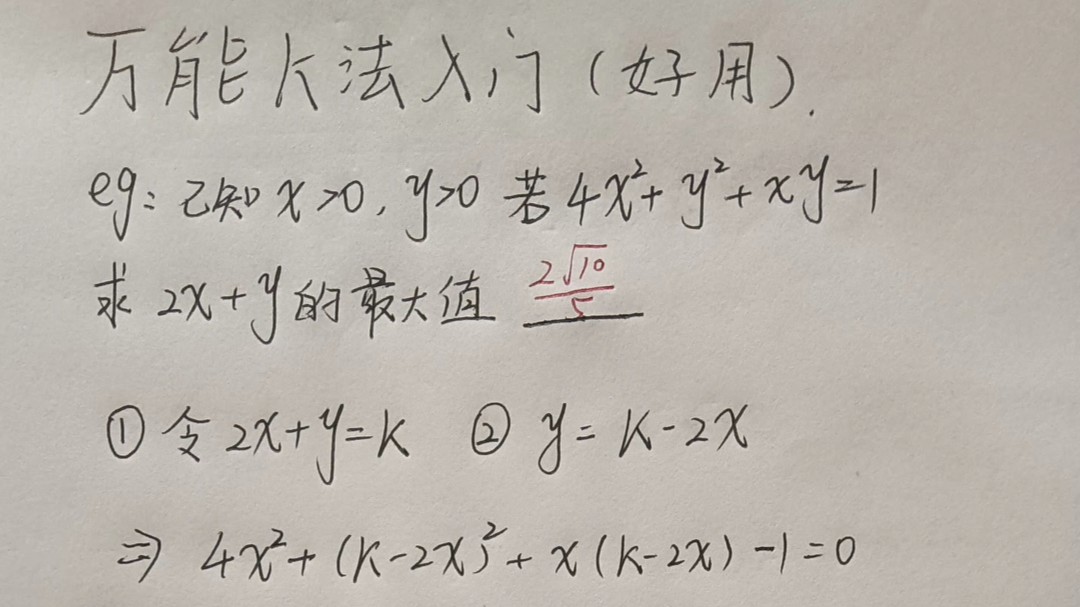 万能K法入门（好用）.
eg：已知 x>0，y>0 若 4x²+y²+xy=1
求 2x+y 的最大值 2√10/5
① 令 2x+y=K ② y=K-2x
⇒ 4x²+(K-2x)²+x(K-2x)-1=0